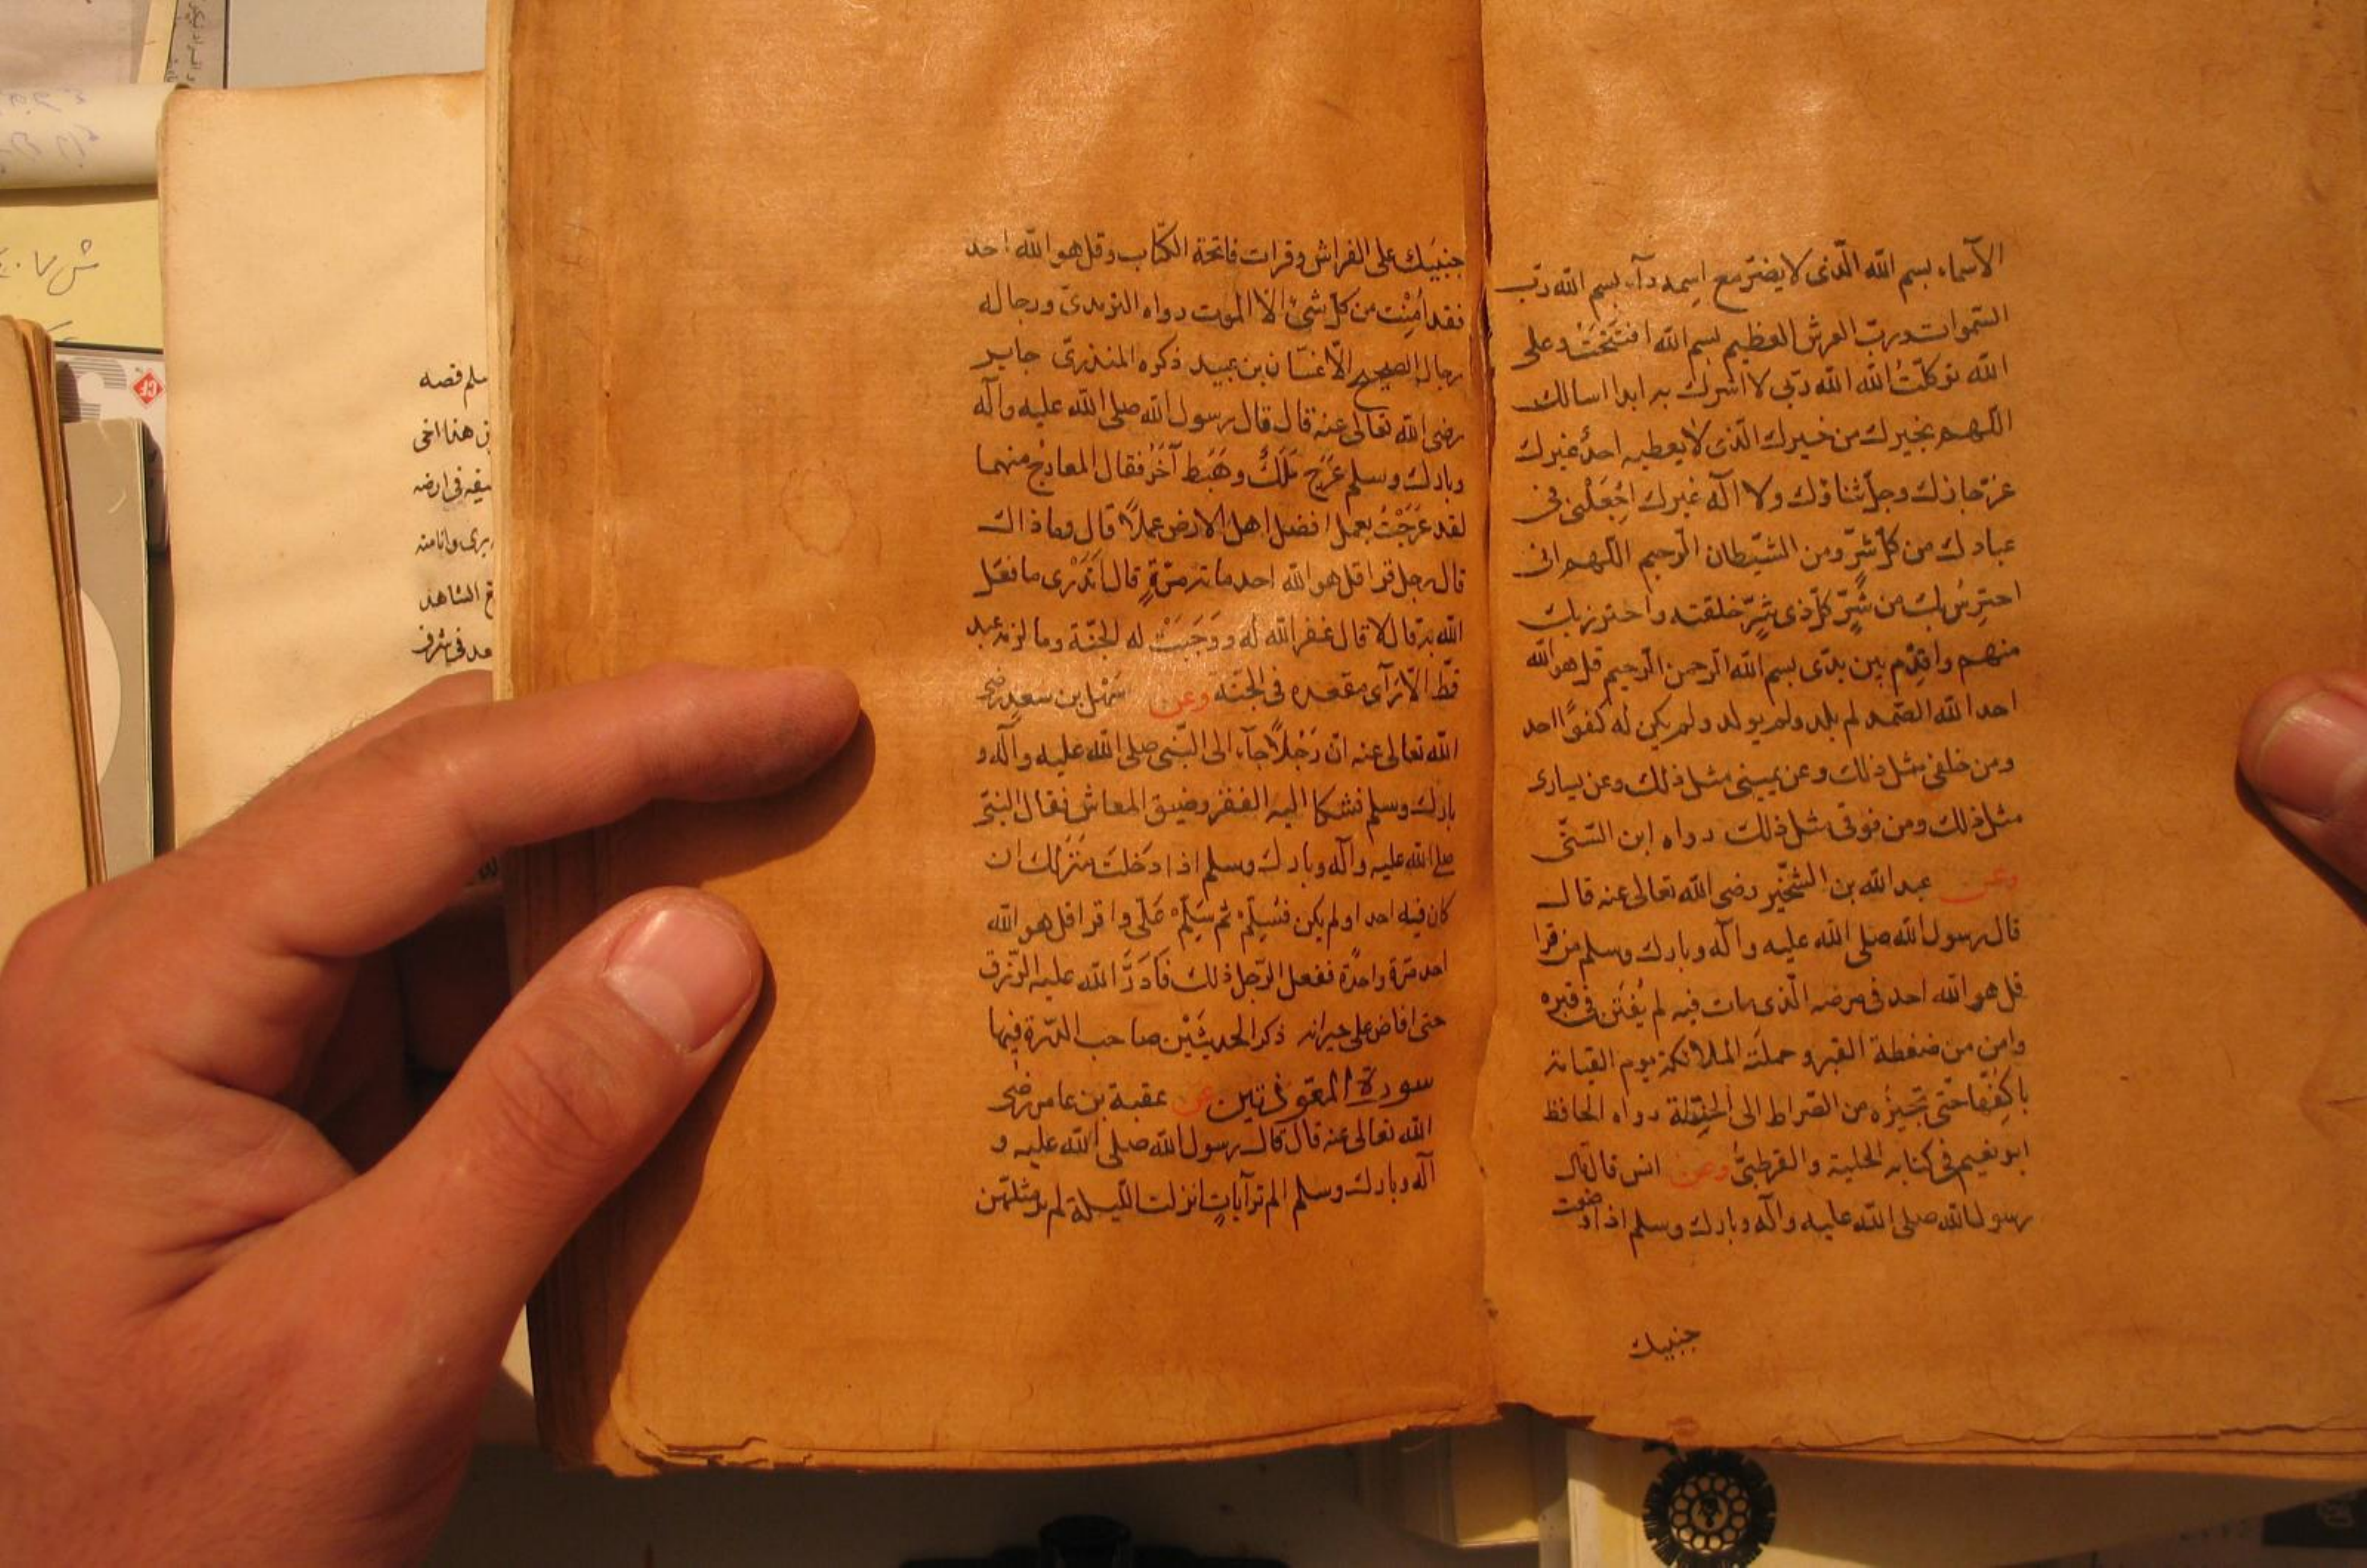 الآسماء بسم الله الّذى لا يضرّ مع اسمه دآء بسم الله ربّ
السّموات وربّ العرش العظيم بسم الله افتتحْتُ وعلى
الله توكّلتُ الله الله ربّى لا اشرك به ابدا اسالك
اللّهم بخيرك من خيرك الّذى لا يعطيه احدٌ غيرك
عزّ جارك وجلّ ثناؤك ولا اله غيرك اجْعَلْنى فى
عبادك من كلّ شرّ ومن الشّيطان الرّجيم اللّهم انى
احترسُ بك من شرّ كلّ ذى شرّ خلقته واحترز بك
منهم واقدّم بين يدّى بسم الله الرّحمن الرّحيم قل هو الله
احد الله الصّمد لم يلد ولم يولد ولم يكن له كفوًا احد
ومن خلفى مثل ذلك وعن يمينى مثل ذلك وعن يسارى
مثل ذلك ومن فوقى مثل ذلك رواه ابن السّنّى
وعن عبد الله بن الشّخّير رضى الله تعالى عنه قال
قال رسول الله صلى الله عليه وآله وبارك وسلم من قرا
قل هو الله احد فى مرضه الّذى مات فيه لم يُفتن فى قبره
وامن من ضغطة القبر وحملَته الملائكة يوم القيامة
باكُفّها حتّى تُجيزُه من الصّراط الى الجنّة رواه الحافظ
ابو نعيم فى كتابه الحلية والقرطبىُّ وعن انس قال قال
رسول الله صلى الله عليه وآله وبارك وسلم اذا وضعت
جنبيك
جنبَيك على الفراش وقرات فاتحة الكتاب وقل هو الله احد
فقد اَمِنْت من كلّ شئ الّا الموت رواه التّرمذىّ ورجاله
رجال الصحيح الّا غسّان بن عبيد ذكره المنذرىّ جابر
رضى الله تعالى عنه قال قال رسول الله صلى الله عليه وآله
وبارك وسلم عَرَج مَلَكٌ وهَبَط آخَرُ فقال المعارج منهما
لقد عَرَجْتُ بعمل افضل اهل الارض عملًا قال وما ذاك
قال رجل قرا قل هو الله احد مائة مرّةٍ قال اَتَدْرى ما فعَل
الله به قال لا قال غفر الله له ووَجَبَتْ له الجنّة وما لزمه عبد
قطّ الّا رَآى مقعده فى الجنّة وعن سَهْل بن سعدٍ رضى
الله تعالى عنه انّ رَجُلًا جآء الى النّبى صلى الله عليه وآله و
بارك وسلم فشكا اليه الفقر وضيق المعاش فقال النبىّ
صلى الله عليه وآله وبارك وسلم اذا دَخلتَ مَنْزلك ان
كان فيه احد اولم يكن فسَلّمْ ثم سَلّمْ عَلَى واقرا قل هو الله
احد مرّة واحدًة ففعل الرّجل ذلك فَاَدَرَّ الله عليه الرّزق
حتى افاض على جيرانه ذكر الحديثَيْن صاحب الدّرة فيها
سورة المعّوذتين عن عقبة بن عامر رضى
الله تعالى عنه قال قال رسول الله صلى الله عليه و
آله وبارك وسلم الم تر آياتٍ انزلت اللّيلة لم ير مثلهنّ
سلم قصه
هذا اخى
فى ارضه
يرى وانا منه
الشاهد
فى شرف